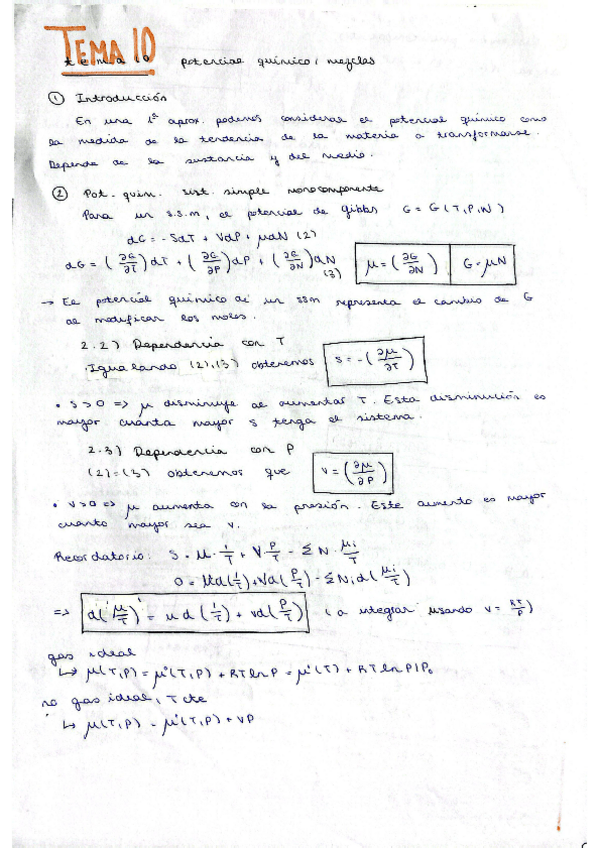 TEMA 10
tema 10 potencial químico, mezclas
① Introducción
En una 1ª aprox. podemos considerar el potencial químico como
la medida de la tendencia de la materia a transformarse.
Depende de la sustancia y del medio.
② Pot. quím. sist. simple monocomponente
Para un s.s.m, el potencial de Gibbs G = G(T,P,N)
dG = -SdT + VdP + μdN (2)
dG = (∂G/∂T)dT + (∂G/∂P)dP + (∂G/∂N)dN (3) μ = (∂G/∂N) G = μN
→ El potencial químico de un ssm representa el cambio de G
al modificar los moles.
2.2) Dependencia con T
Igualando (2),(3) obtenemos s = -(∂μ/∂T)
• s>0 => μ disminuye al aumentar T. Esta disminución es
mayor cuanta mayor s tenga el sistema.
2.3) Dependencia con P
(2)=(3) obtenemos que v = (∂μ/∂P)
• v>0 => μ aumenta con la presión. Este aumento es mayor
cuanto mayor sea v.
Recordatorio: S = U · 1/T + V · P/T - ΣN · μi/T
0 = Ud(1/T) + Vd(P/T) - ΣNid(μi/T)
=> d(μ/T) = u d(1/T) + vd(P/T) (a integrar usando v = RT/P)
gas ideal
↳ μ(T,P) = μ°(T,P) + RT ln P = μ°(T) + RT ln P/P₀
no gas ideal, T cte
↳ μ(T,P) = μ°(T,P) + vP